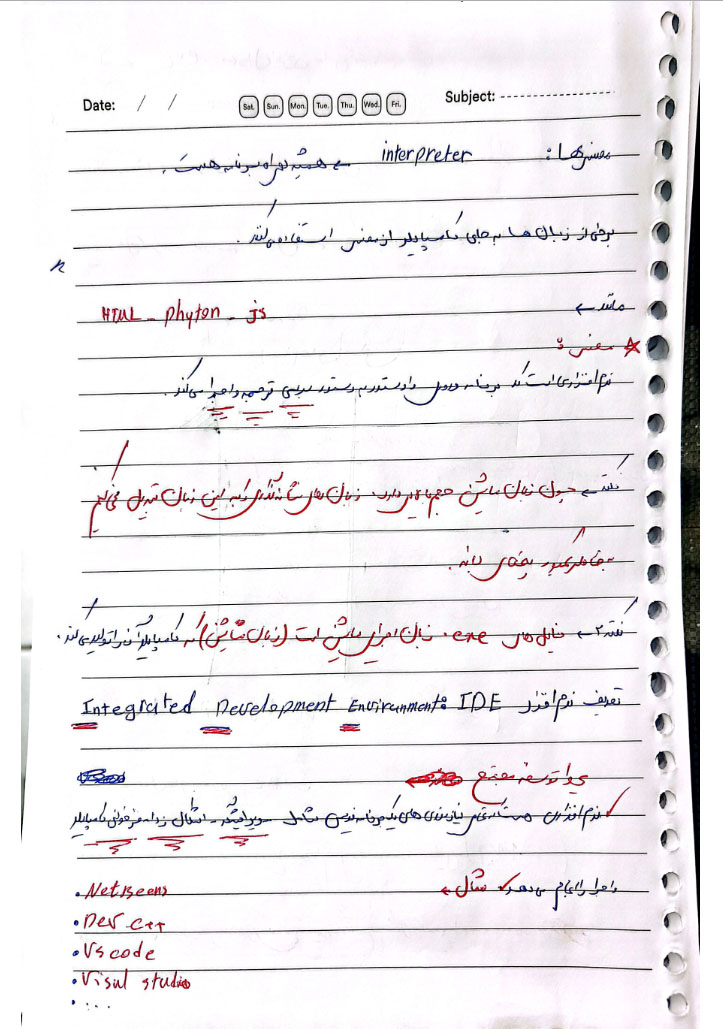 Date: / / Sat. Sun. Mon. Tue. Thu. Wed. Fri. Subject:
مفسرها: interpreter ← همیشه همراه برنامه هست.
برخی از زبان ها به جای کامپایلر از مفسر استفاده می کند.
مانند ← HTML - phyton - js
مفسر:
نرم افزاری است که برنامه را دستور به دستور بررسی ترجمه و اجرا می کند.
نکته ← چون زبان ماشین حجم دارد، زبان های را به این زبان تبدیل می کنیم
رایانه.
نکته ۲ ← فایل های .exe زبان اجرایی ماشین است (زبان ماشین) که کامپایلر آن را تولید می کند.
تعریف نرم افزار IDE: Integrated Development Environment
محیط توسعه مجتمع
نرم افزاری نیازمندی های یک برنامه نویس شامل ویرایشگر - اشکال زدا - کامپایلر
و اجرا را انجام می دهد مثال ←
• NetBeens
• Dev c++
• Vs code
• Visul studio
• ...